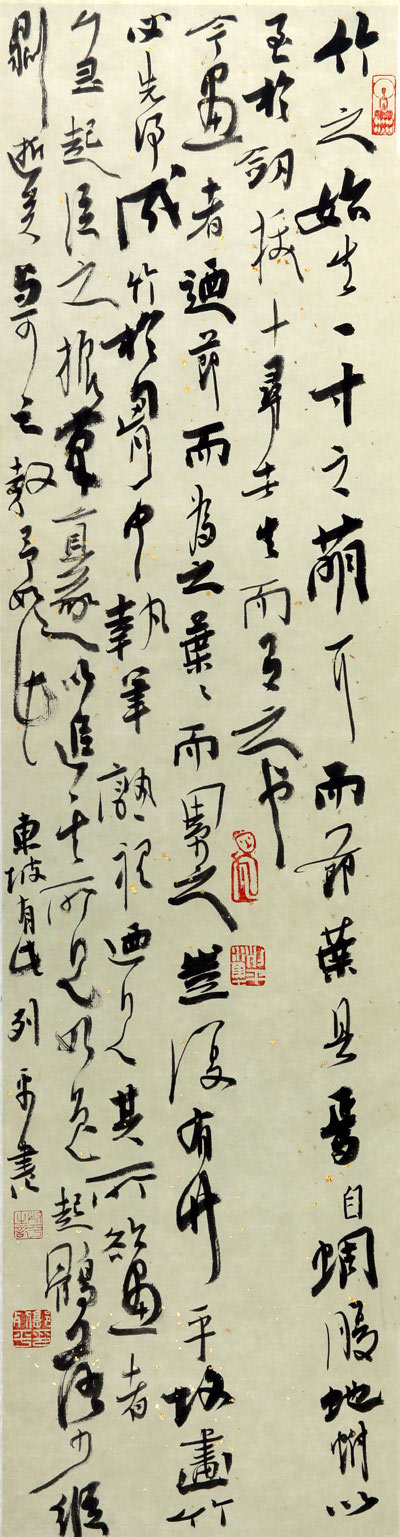 竹之始生一寸之萌耳而節葉具焉自蜩腹蛇蚹以
至於劒拔十尋者生而有之也
今畫者迺節而為之葉々而累之豈復有竹乎故畫竹
必先得成竹於胸中執筆熟視迺見其所欲畫者
急起從之振筆直遂以追其所見如兔起鶻落少縱
則逝矣與可之教予如此 東坡有此 書